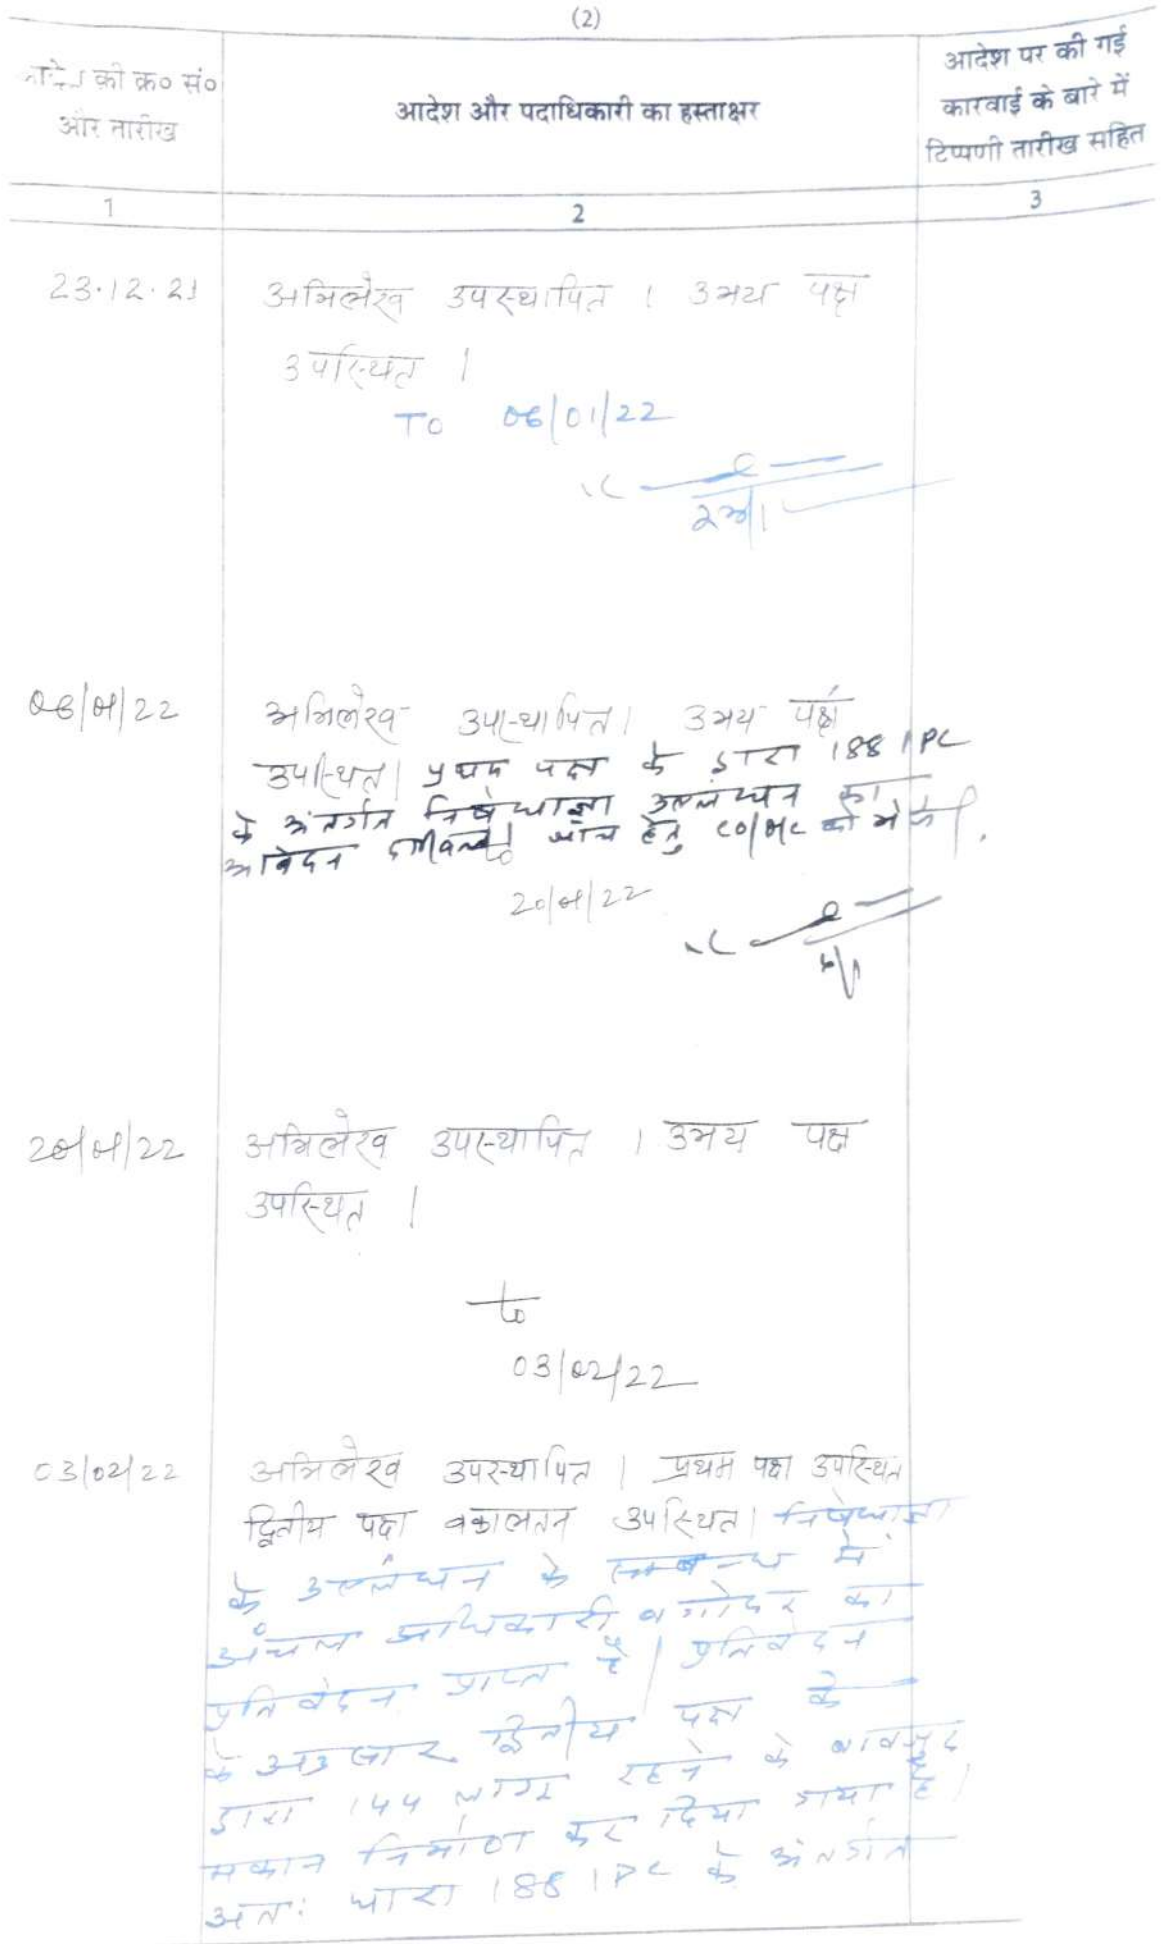 (2)
की क्र० सं०
और तारीख
आदेश और पदाधिकारी का हस्ताक्षर
आदेश पर की गई
कारवाई के बारे में
टिप्पणी तारीख सहित
1
2
3
23.12.21
अभिलेख उपस्थापित । उभय पक्ष
उपस्थित ।
TO 06/01/22
06/01/22
अभिलेख उपस्थापित। उभय पक्ष
उपस्थित। प्रथम पक्ष के द्वारा 188 IPC
के अंतर्गत निषेधाज्ञा उल्लंघन का
आवेदन जाँच हेतु को भेजें।
to
20/01/22
20/01/22
अभिलेख उपस्थापित । उभय पक्ष
उपस्थित ।
to
03/02/22
03/02/22
अभिलेख उपस्थापित । प्रथम पक्ष उपस्थित
द्वितीय पक्ष वकालतन उपस्थित। निषेधाज्ञा
के उल्लंघन के सम्बन्ध में
अंचल अधिकारी बगोदर का
प्रतिवेदन प्राप्त है। प्रतिवेदन
के अनुसार द्वितीय पक्ष के
द्वारा 144 लागू रहने के बावजूद
मकान निर्माण कर दिया गया है।
अतः धारा 188 IPC के अंतर्गत